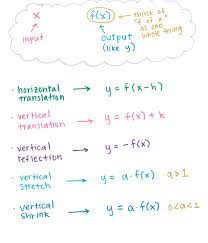 x
f(x) ← think of "f of x" as one whole thing
input
output (like y)
• horizontal translation → y = f(x-h)
• vertical translation → y = f(x) + k
• vertical reflection → y = -f(x)
• vertical stretch → y = a·f(x) a>1
• vertical shrink → y = a·f(x) 0<a<1